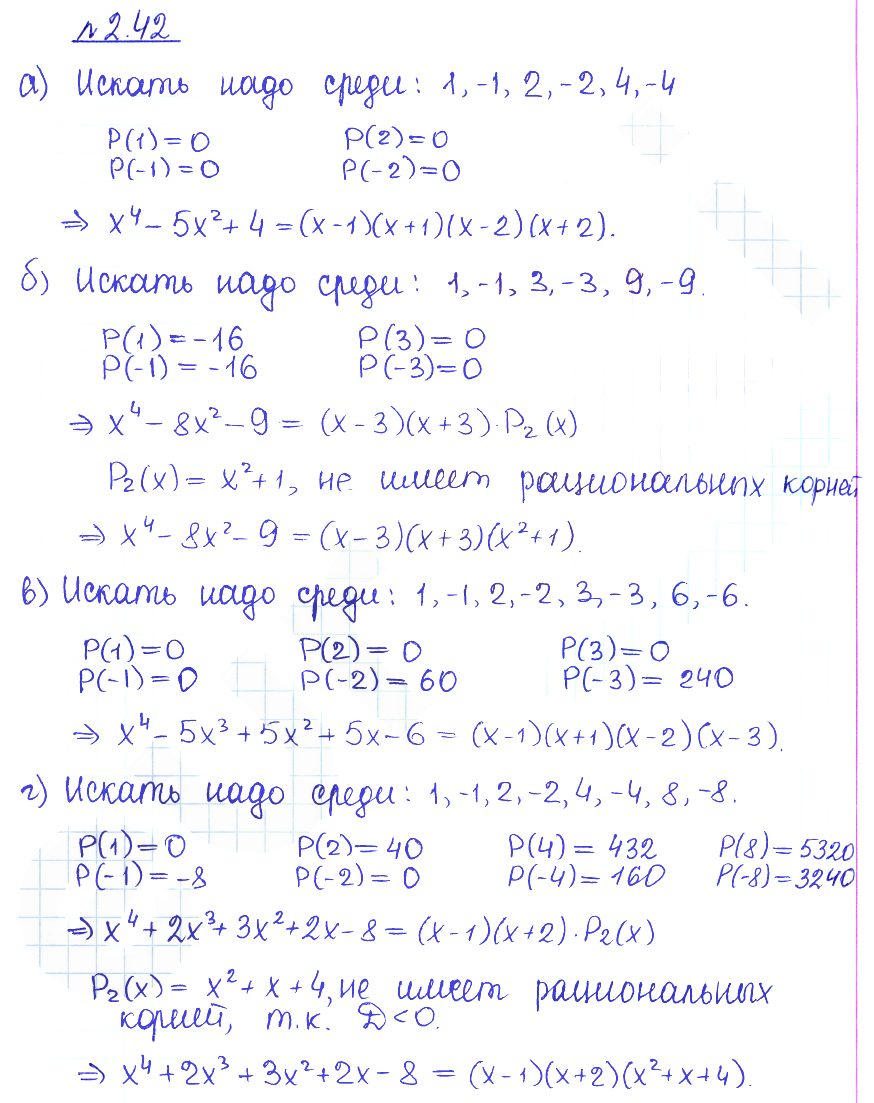 № 2.42
а) Искать надо среди: 1, -1, 2, -2, 4, -4
P(1) = 0 P(2) = 0
P(-1) = 0 P(-2) = 0
⇒ x⁴ - 5x² + 4 = (x-1)(x+1)(x-2)(x+2).
б) Искать надо среди: 1, -1, 3, -3, 9, -9.
P(1) = -16 P(3) = 0
P(-1) = -16 P(-3) = 0
⇒ x⁴ - 8x² - 9 = (x-3)(x+3)·P₂(x)
P₂(x) = x² + 1, не имеет рациональных корней
⇒ x⁴ - 8x² - 9 = (x-3)(x+3)(x²+1).
в) Искать надо среди: 1, -1, 2, -2, 3, -3, 6, -6.
P(1) = 0 P(2) = 0 P(3) = 0
P(-1) = 0 P(-2) = 60 P(-3) = 240
⇒ x⁴ - 5x³ + 5x² + 5x - 6 = (x-1)(x+1)(x-2)(x-3).
г) Искать надо среди: 1, -1, 2, -2, 4, -4, 8, -8.
P(1) = 0 P(2) = 40 P(4) = 432 P(8) = 5320
P(-1) = -8 P(-2) = 0 P(-4) = 160 P(-8) = 3240
⇒ x⁴ + 2x³ + 3x² + 2x - 8 = (x-1)(x+2)·P₂(x)
P₂(x) = x² + x + 4, не имеет рациональных
корней, т.к. D < 0.
⇒ x⁴ + 2x³ + 3x² + 2x - 8 = (x-1)(x+2)(x²+x+4).